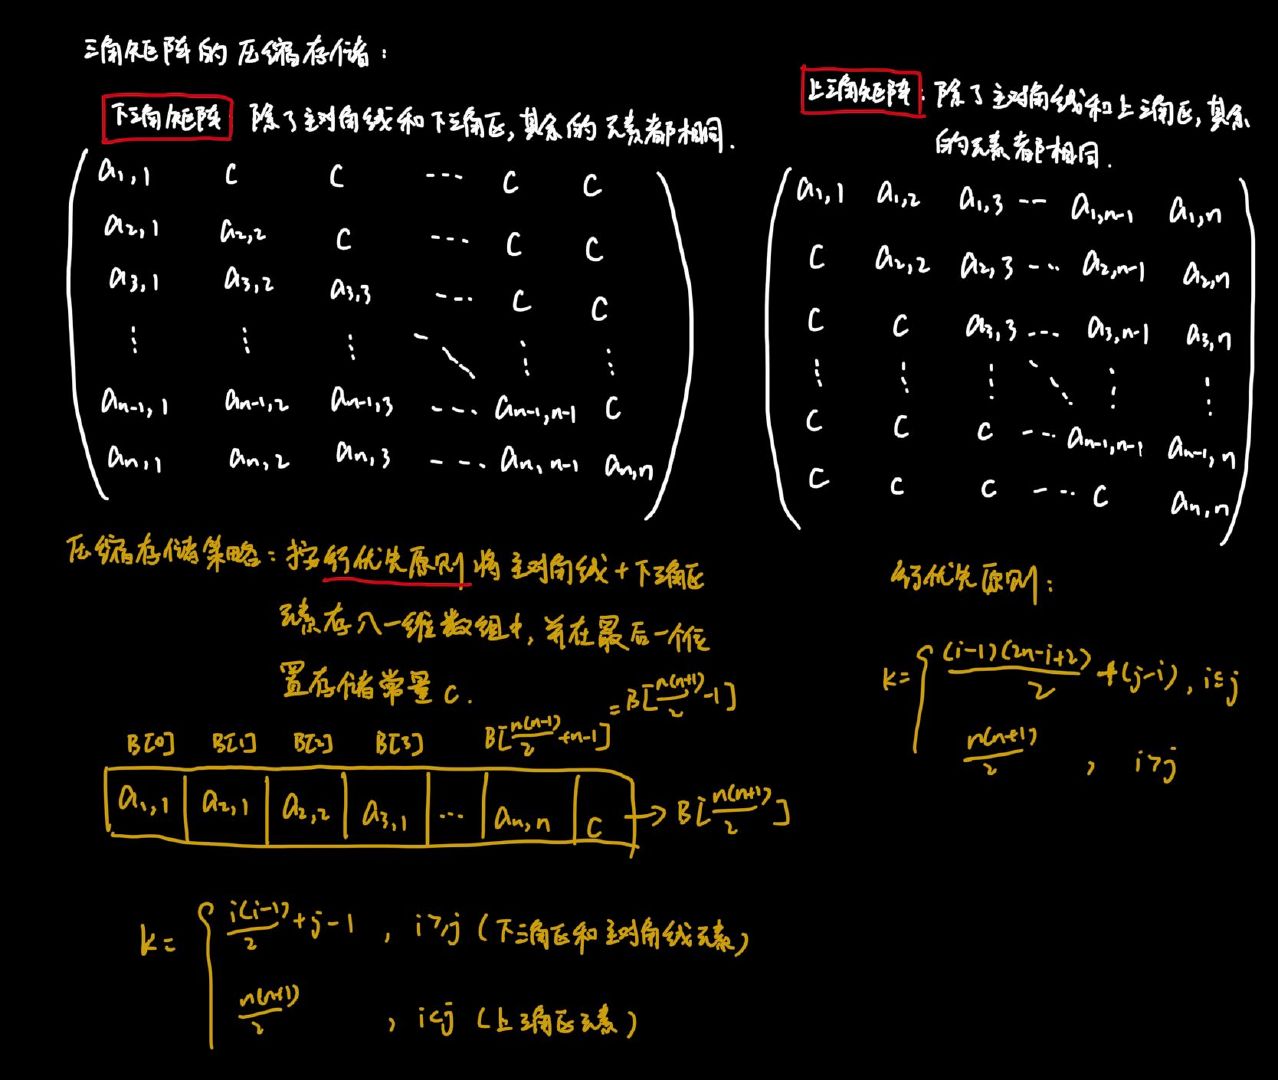 三角矩阵的压缩存储：
下三角矩阵 除了主对角线和下三角区，其余的元素都相同．
a1,1 c c ··· c c
a2,1 a2,2 c ··· c c
a3,1 a3,2 a3,3 ··· c c
⋮ ⋮ ⋮ ⋱ ⋮ ⋮
an-1,1 an-1,2 an-1,3 ··· an-1,n-1 c
an,1 an,2 an,3 ··· an,n-1 an,n
上三角矩阵：除了主对角线和上三角区，其余
的元素都相同．
a1,1 a1,2 a1,3 ··· a1,n-1 a1,n
c a2,2 a2,3 ··· a2,n-1 a2,n
c c a3,3 ··· a3,n-1 a3,n
⋮ ⋮ ⋮ ⋱ ⋮ ⋮
c c c ··· an-1,n-1 an-1,n
c c c ··· c an,n
压缩存储策略：按行优先原则将主对角线+下三角区
元素存入一维数组中，并在最后一个位
置存储常量c．
B[0] B[1] B[2] B[3] B[n(n-1)/2+n-1]=B[n(n+1)/2-1]
a1,1 a2,1 a2,2 a3,1 ··· an,n c → B[n(n+1)/2]
k= { i(i-1)/2+j-1 , i≥j (下三角区和主对角线元素)
n(n+1)/2 , i<j (上三角区元素)
行优先原则：
k= { (i-1)(2n-i+2)/2+(j-i), i≤j
n(n+1)/2 , i>j